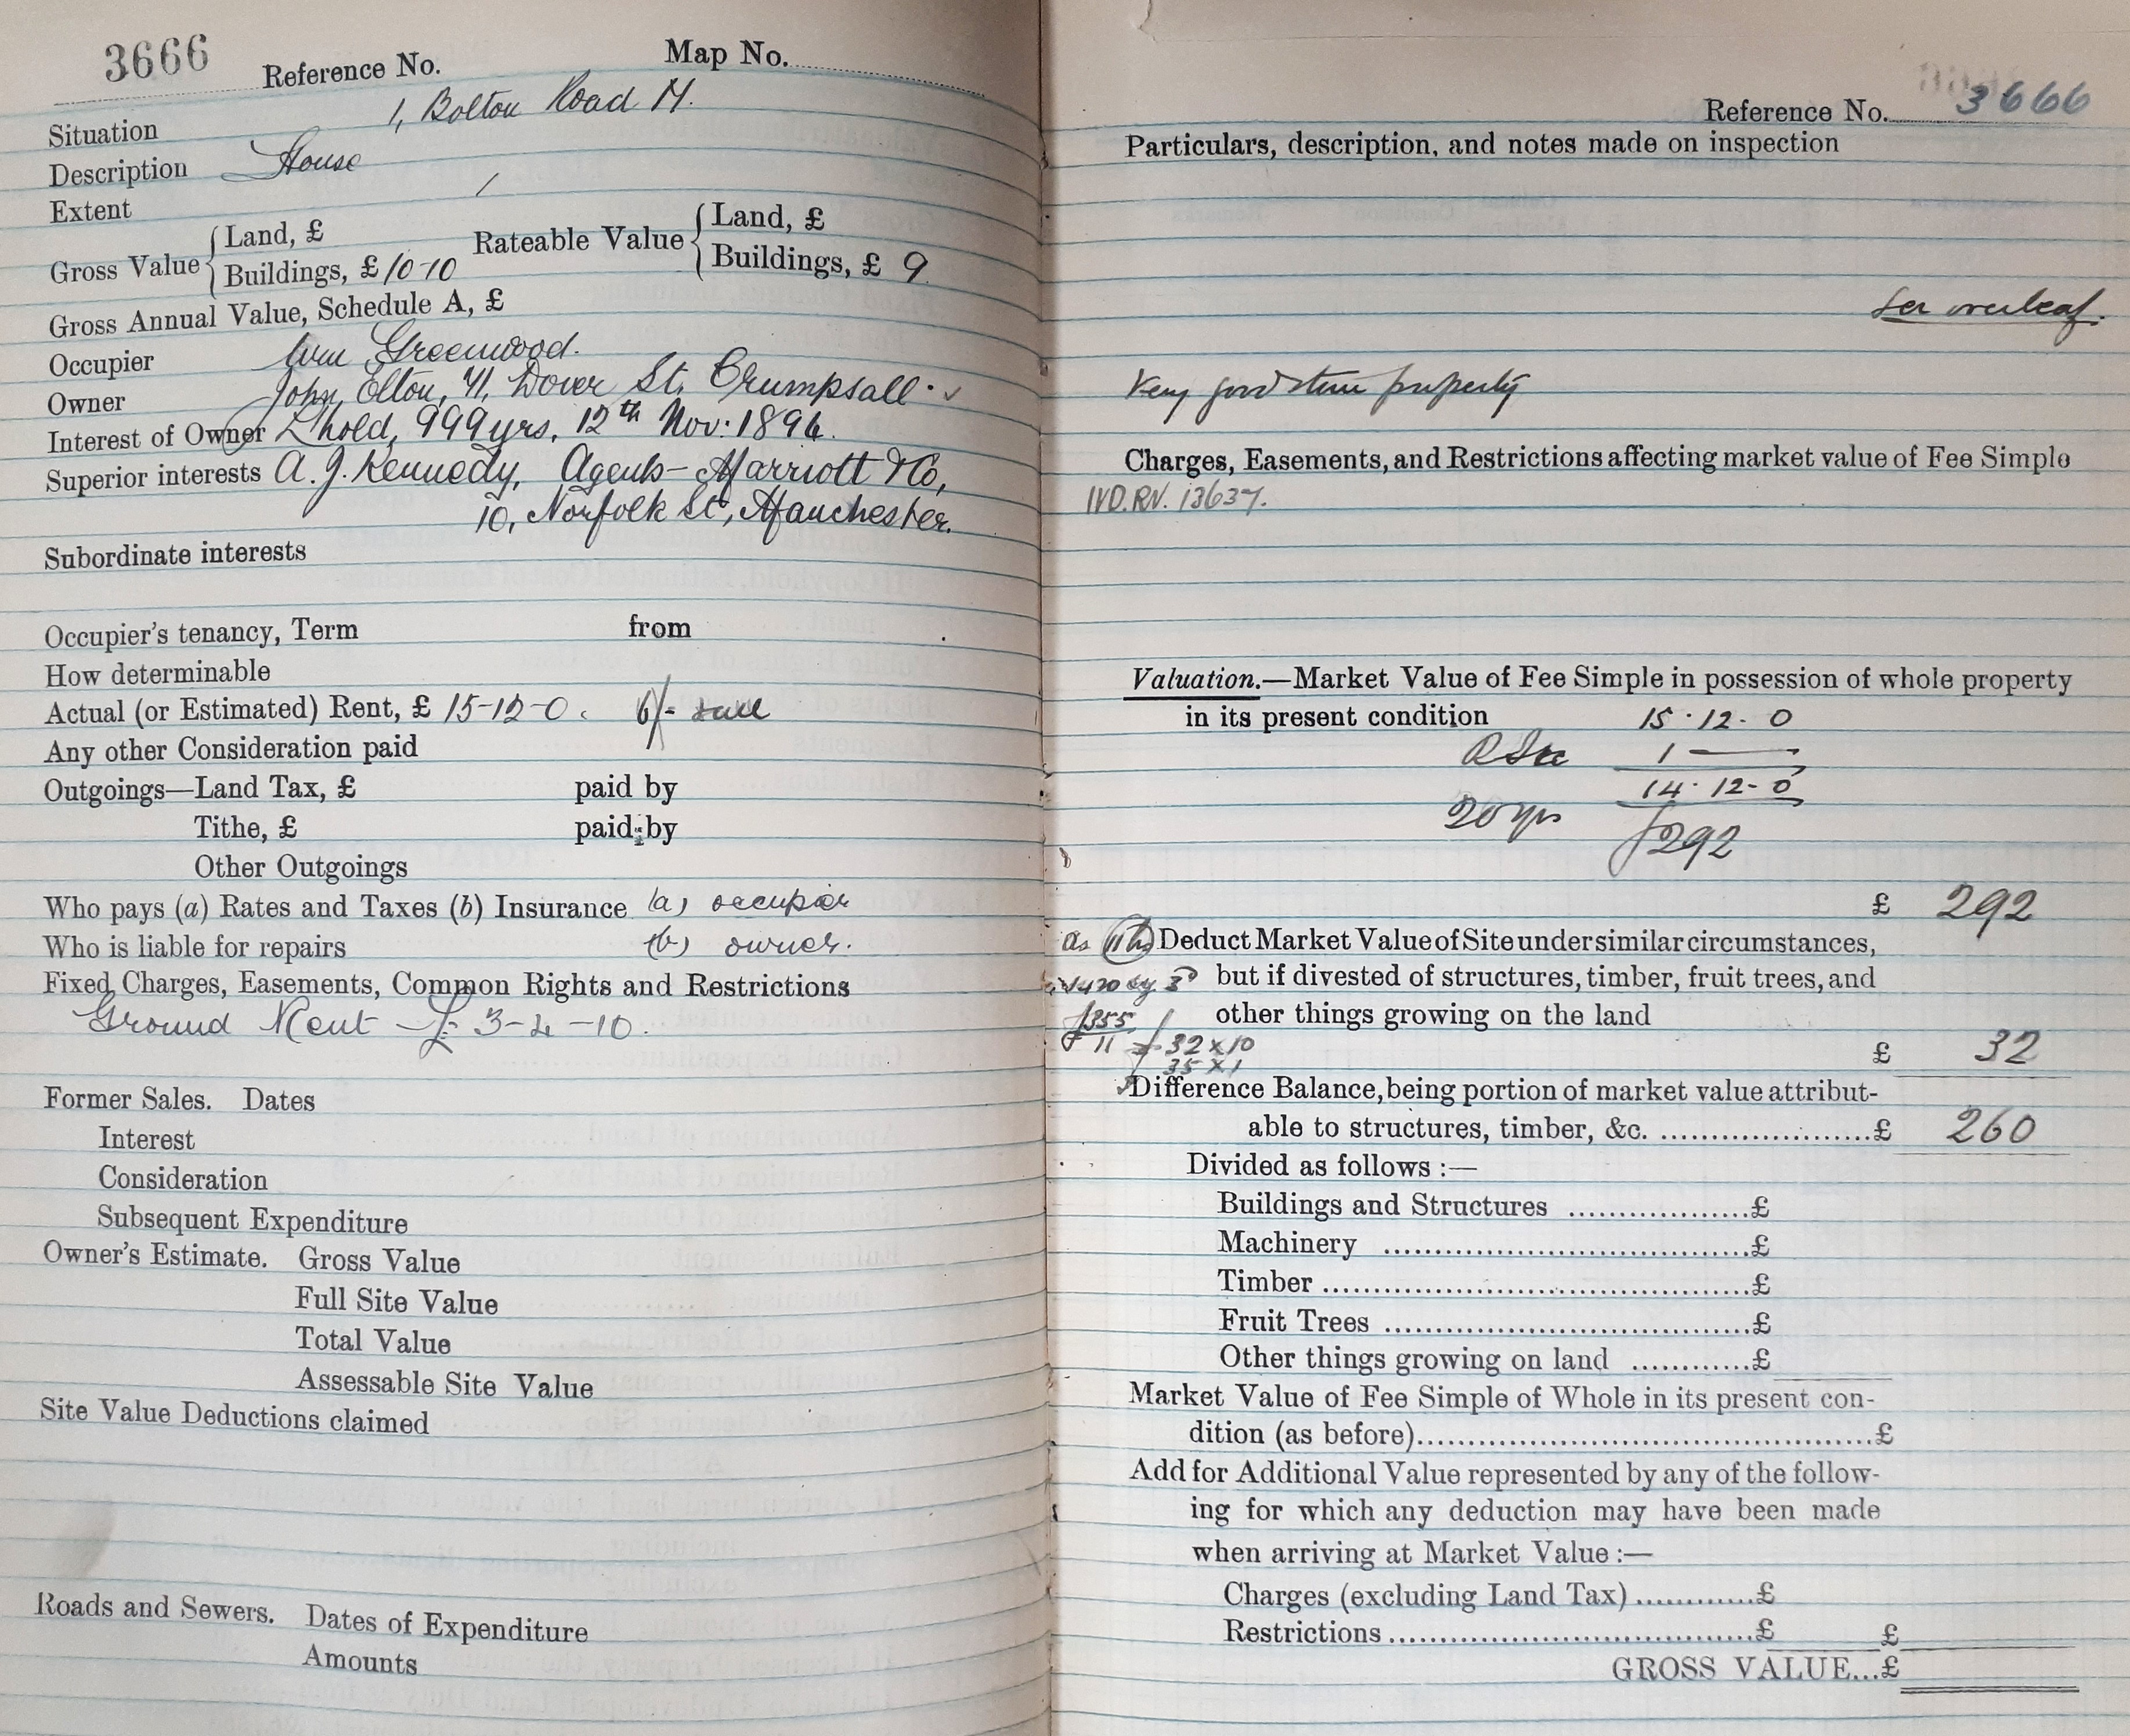 3666
Reference No.
Map No.
Situation 1, Bolton Road N.
Description House
Extent
Gross Value { Land, £
Buildings, £ 10-10
Rateable Value { Land, £
Buildings, £ 9
Gross Annual Value, Schedule A, £
Occupier Wm Greenwood.
Owner John Elton, 41, Dover St. Crumpsall.
Interest of Owner L'hold, 999 yrs, 12th Nov: 1896.
Superior interests A. J. Kennedy, Agents- Marriott & Co,
10, Norfolk St, Manchester.
Subordinate interests
Occupier's tenancy, Term from
How determinable
Actual (or Estimated) Rent, £ 15-12-0. 6/-
Any other Consideration paid
Outgoings—Land Tax, £ paid by
Tithe, £ paid by
Other Outgoings
Who pays (a) Rates and Taxes (b) Insurance (a) occupier
Who is liable for repairs (b) owner.
Fixed Charges, Easements, Common Rights and Restrictions
Ground Rent £ 3-4-10.
Former Sales. Dates
Interest
Consideration
Subsequent Expenditure
Owner's Estimate. Gross Value
Full Site Value
Total Value
Assessable Site Value
Site Value Deductions claimed
Roads and Sewers. Dates of Expenditure
Amounts
Reference No. 3666
Particulars, description, and notes made on inspection
See overleaf.
Very good stone property
Charges, Easements, and Restrictions affecting market value of Fee Simple
IVD. RN. 13637.
Valuation.—Market Value of Fee Simple in possession of whole property
in its present condition 15.12.0
1 —
14.12-0
20 yrs £292
£ 292
Deduct Market Value of Site under similar circumstances,
but if divested of structures, timber, fruit trees, and
other things growing on the land
£355
11 32 x 10
35 x 1
£ 32
Difference Balance, being portion of market value attribut-
able to structures, timber, &c. ....................£ 260
Divided as follows :—
Buildings and Structures ..................£
Machinery ....................................£
Timber ..........................................£
Fruit Trees ....................................£
Other things growing on land ............£
Market Value of Fee Simple of Whole in its present con-
dition (as before)............................................£
Add for Additional Value represented by any of the follow-
ing for which any deduction may have been made
when arriving at Market Value :—
Charges (excluding Land Tax) ............£
Restrictions ....................................£ £
GROSS VALUE...£